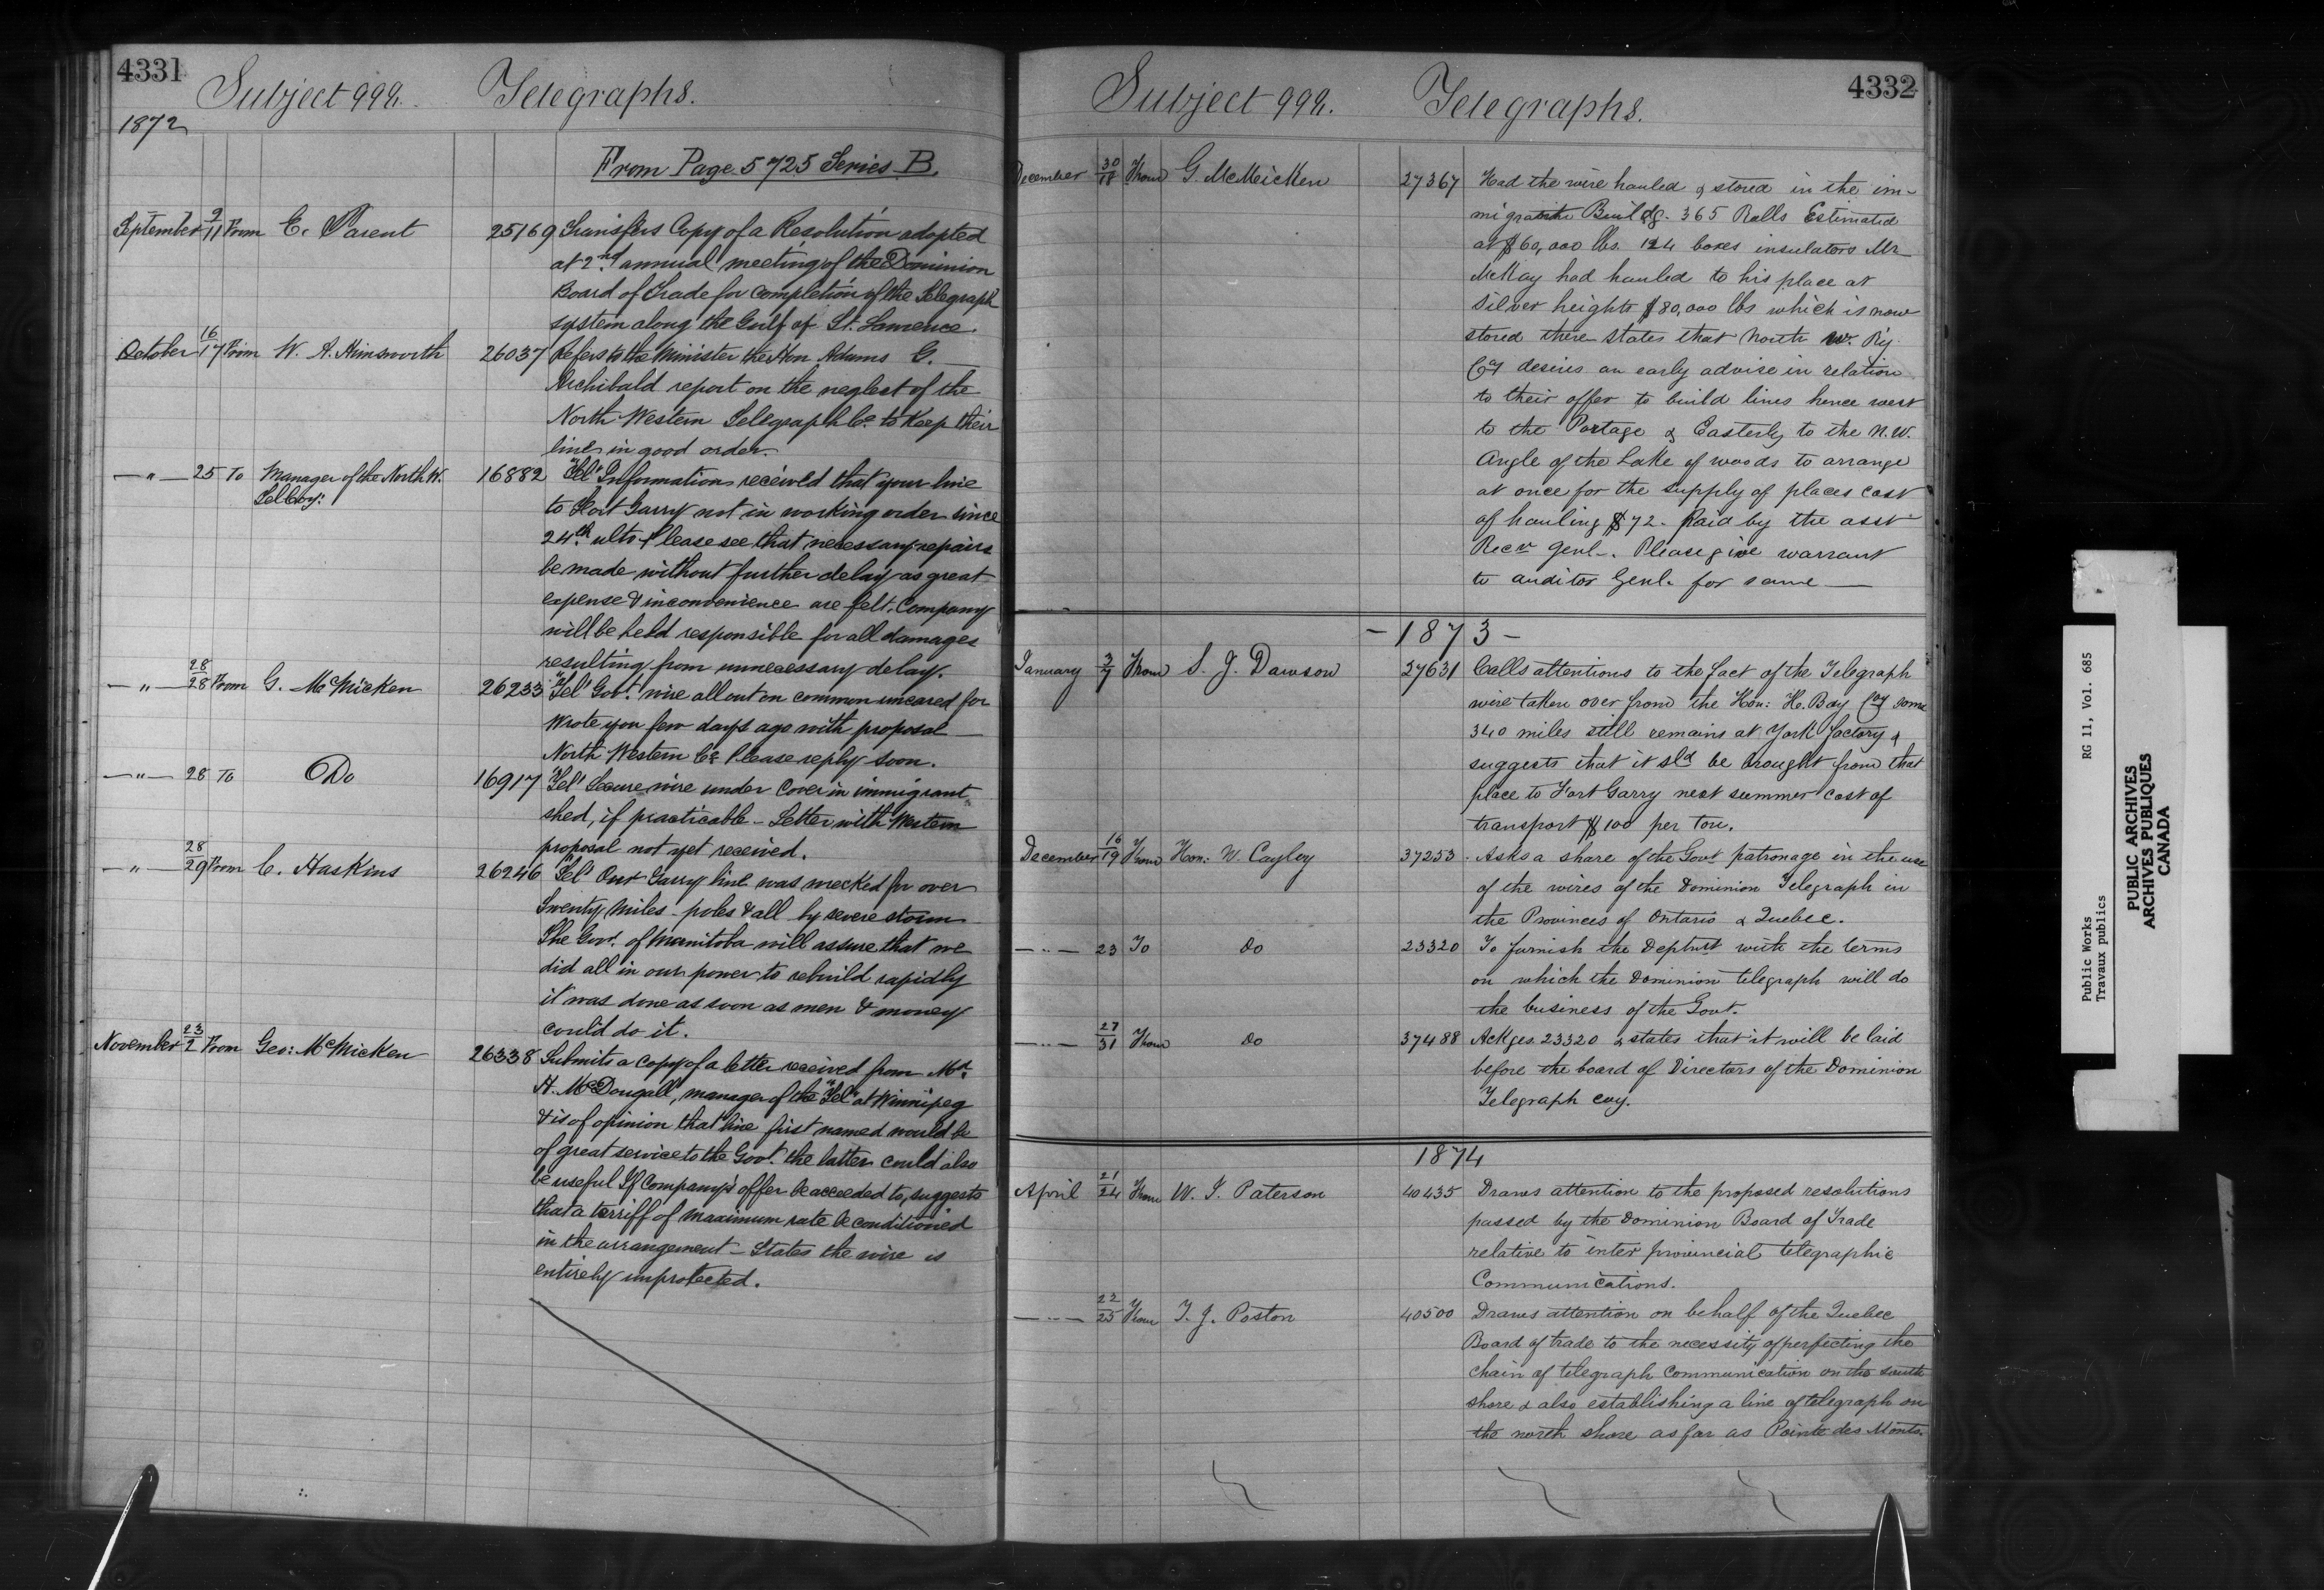 4331
Subject 992. Telegraphs.
1872
From Page 5725 Series B.
September 9/11 From E. Parent 25169 Transfers Copy of a Resolution adopted
at 2nd annual meeting of the Dominion
Board of Trade for completion of the Telegraph
system along the Gulf of St. Lawrence.
October 16/17 From W. A. Himsworth 26037 Refers to the Minister the Hon Adams G.
Archibald report on the neglect of the
North Western Telegraph Co. to Keep their
lines in good order.
—"— 25 To Manager of the North W. 16882 "Tel" Information received that your line
Tel Coy:
to Fort Garry not in working order since
24th ulto Please see that necessary repairs
be made without further delay as great
expense & inconvenience are felt. Company
will be held responsible for all damages
resulting from unnecessary delay.
—"— 28/28 From G. McMicken 26233 "Tel" Govt. wire all out on common uncared for
Wrote you few days ago with proposal
North Western Co. Please reply soon.
—"— 28 To Do 16917 "Tel" Secure wire under Cover in immigrant
shed, if practicable - Letter with Western
proposal not yet received.
—"— 28/29 From C. Haskins 26246 "Tel" Our Garry line was wrecked for over
Twenty Miles - poles & all by severe storm
The Govt. of Manitoba will assure that we
did all in our power to rebuild rapidly
it was done as soon as men & money
could do it.
November 23/2 From Geo: McMicken 26338 Submits a copy of a letter received from Mr.
H. McDougall, manager of the "Tel" at Winnipeg
& is of opinion that line first named would be
of great service to the Govt. the latter could also
be useful If Company's offer be acceeded to, suggests
that a terriff of maximum rate be conditioned
in the arrangement - States the wire is
entirely unprotected.
4332
Subject 992. Telegraphs.
December 30/18 From G. McMicken 27367 Had the wire hauled & stored in the im-
migrants Buildg. 365 Rolls Estimated
at 60,000 lbs. 124 boxes insulators Mr
McKay had hauled to his place at
silver heights 80,000 lbs which is now
stored there states that North W. Ry.
Coy desires an early advise in relation
to their offer to build lines hence west
to the Portage & Easterly to the N.W.
Angle of the Lake of woods to arrange
at once for the supply of places cost
of hauling $72. Paid by the asst
Recr Genl. Please give warrant
to auditor Genl. for same —
- 1873 -
January 3/7 From S. J. Dawson 27631 Calls attentions to the fact of the Telegraph
wire taken over from the Hon: H. Bay Coy some
340 miles still remains at York factory &
suggests that it sld be brought from that
place to Fort Garry next summer cost of
transport $100 per Ton.
December 16/19 From Hon: W. Cayley 37253 Asks a share of the Govt patronage in the use
of the wires of the Dominion Telegraph in
the Provinces of Ontario & Quebec.
—"— 23 To do 23320 To furnish the Deptmt with the terms
on which the Dominion telegraph will do
the business of the Govt.
—"— 27/31 From do 37488 Ackges. 23320 & states that it will be laid
before the board of Directors of the Dominion
Telegraph coy.
1874
April 21/24 From W. J. Paterson 40435 Draws attention to the proposed resolutions
passed by the Dominion Board of Trade
relative to inter provincial telegraphic
Communications.
—"— 22/25 From T. J. Poston 40500 Draws attention on behalf of the Quebec
Board of trade to the necessity of perfecting the
chain of telegraph Communication on the south
shore & also establishing a line of telegraph on
the north shore as far as Pointe des Monts.
Public Works RG 11, Vol. 685
Travaux publics
PUBLIC ARCHIVES
ARCHIVES PUBLIQUES
CANADA